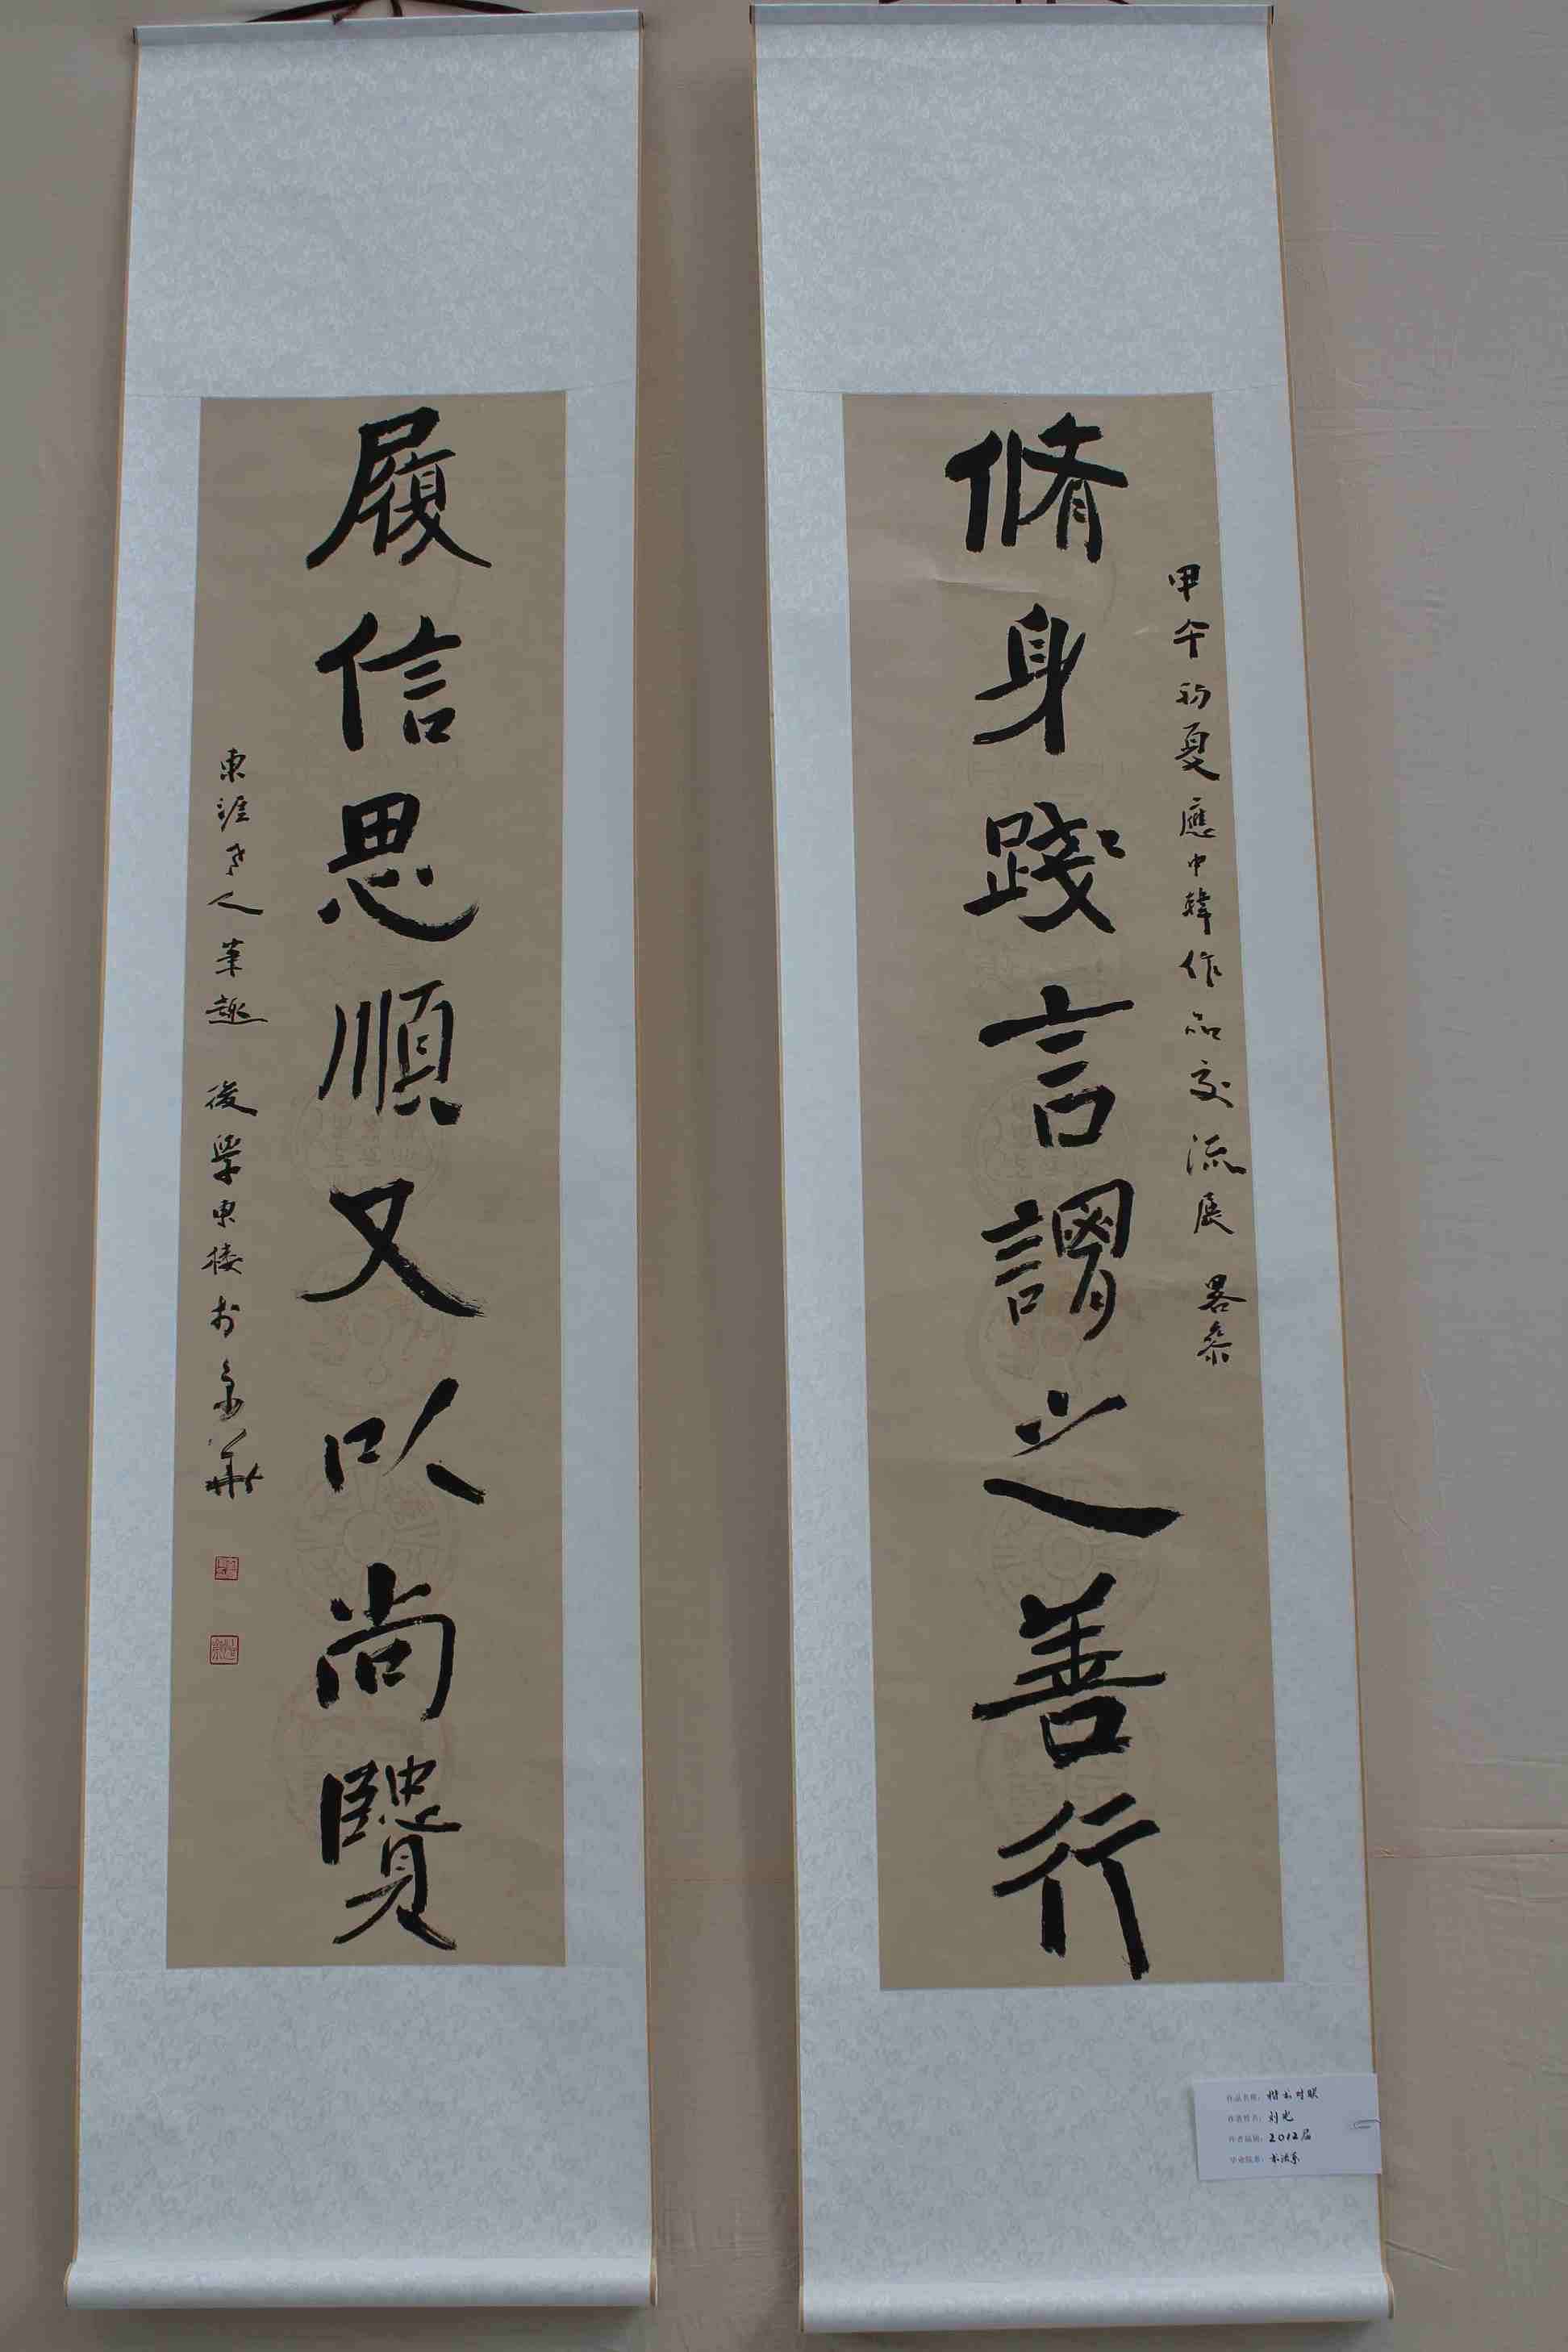 脩身踐言謂之善行
甲午初夏應中韓作品交流展 畧參
履信思順又以尚賢
東涯老人筆趣 後學東樓於京華
作品名称：楷书对联
作者姓名：刘光
作者届别：2012届
毕业院系：书法系